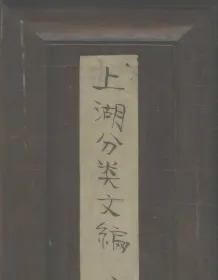 上湖分类文編